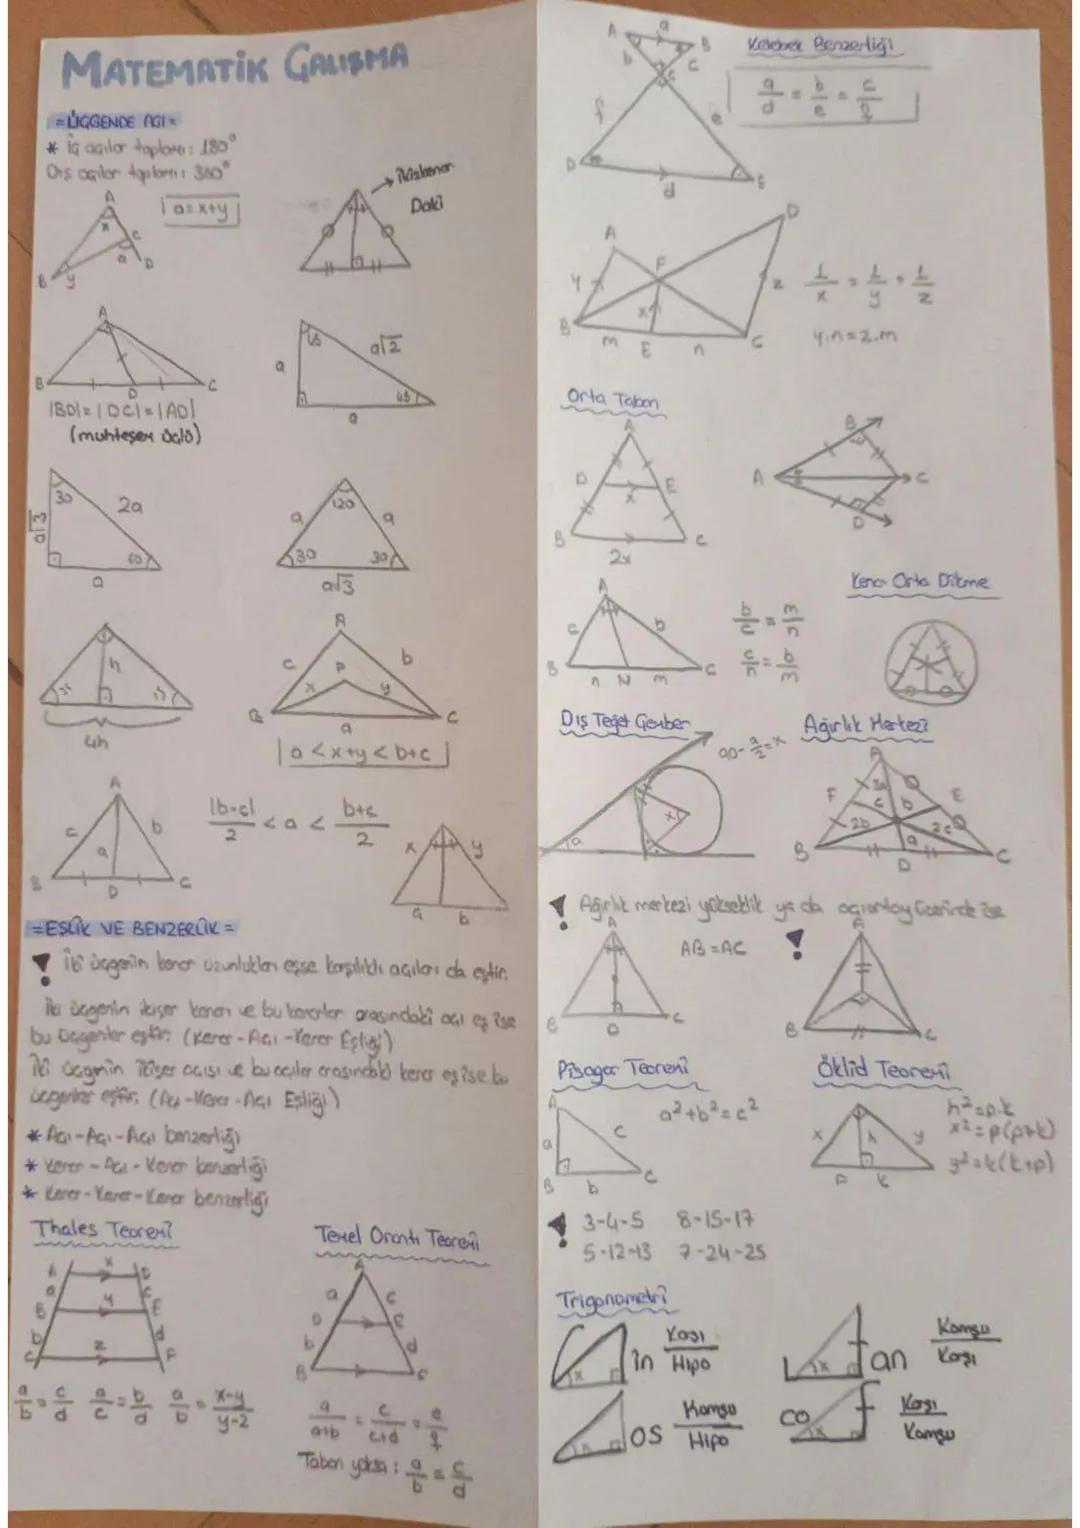 MATEMATİK ÇALIŞMA
=ÜÇGENDE AÇI=
* İç açılar toplamı: 180°
Dış açılar toplamı: 360°
A
x
B
y
C
a
D
a=x+y
İkizkenar
Daki
A
B
D
C
|BD|=|DC|=|AD|
(muhteşem üçlü)
45
a
a√2
45
a
30
a√3
2a
60
a
120
a
a
30
30
a√3
h
15
15
4h
A
c
b
P
x
y
B
a
C
a<x+y<b+c
A
c
b
a
B
D
C
|b-c|/2 < a < b+c/2
x
y
a
b
=EŞLİK VE BENZERLİK=
! İki üçgenin kenar uzunlukları eşse karşılıklı açıları da eştir.
İki üçgenin ikişer kenarı ve bu kenarlar arasındaki açı eş ise
bu üçgenler eştir. (Kenar-Açı-Kenar Eşliği)
İki üçgenin ikişer açısı ve bu açılar arasındaki kenar eş ise bu
üçgenler eştir. (Açı-Kenar-Açı Eşliği)
* Açı-Açı-Açı benzerliği
* Kenar-Açı-Kenar benzerliği
* Kenar-Kenar-Kenar benzerliği
Thales Teoremi
A
x
D
a
c
B
y
E
b
d
C
z
F
a/b = c/d a/c = b/d a/b = x-y/y-z
Temel Orantı Teoremi
A
a
c
D
E
b
d
B
C
a/a+b = c/c+d = e/f
Taban yoksa: a/b = c/d
A
a
B
b
c
C
f
e
D
d
E
Kelebek Benzerliği
a/d = b/e = c/f
A
D
F
y
x
z
B
m
E
n
C
1/x = 1/y + 1/z
y.n=z.m
Orta Taban
A
D
x
E
B
2x
C
B
A
C
D
A
c
b
B
n
N
m
C
b/c = m/n
c/n = b/m
Kenar Orta Dikme
Dış Teğet Çember
a
x
90-a/2=x
Ağırlık Merkezi
A
F
E
2a
c
b
2b
a
2c
B
D
C
! Ağırlık merkezi yükseklik ya da açıortay üzerinde ise
A
B
D
C
AB=AC
!
A
B
C
Pisagor Teoremi
A
a
c
B
b
C
a²+b²=c²
Öklid Teoremi
x
h
y
p
k
h²=p.k
x²=p(p+k)
y²=k(k+p)
! 3-4-5 8-15-17
5-12-13 7-24-25
Trigonometri
x
in Karşı/Hipo
x
an Komşu/Karşı
x
os Komşu/Hipo
co
x
Karşı/Komşu